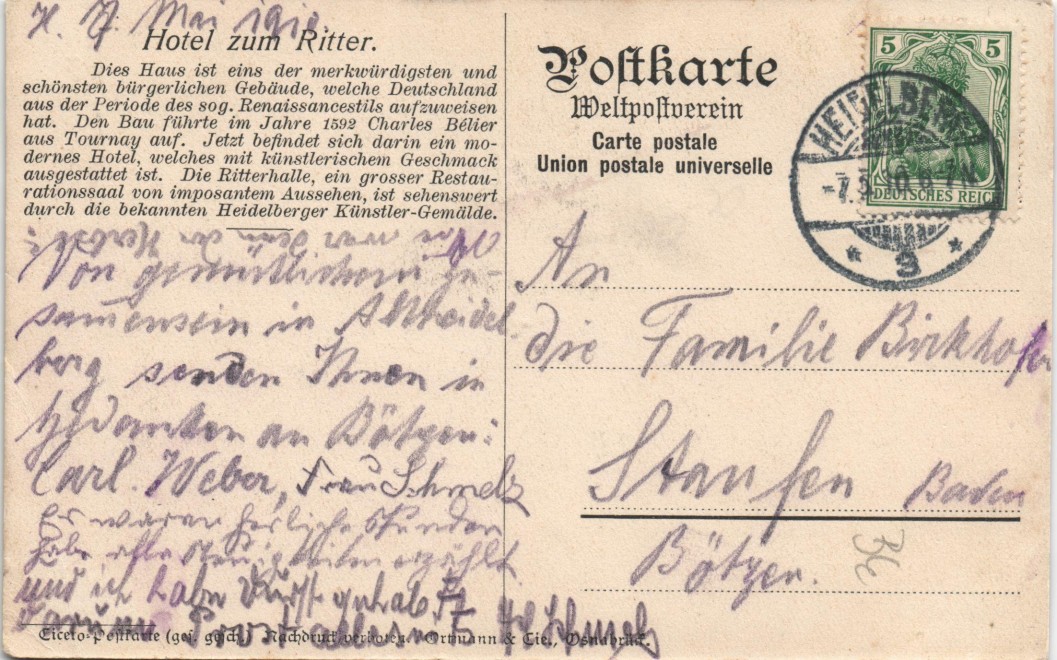 H. 7. Mai 1910.
Hotel zum Ritter.
Dies Haus ist eins der merkwürdigsten und
schönsten bürgerlichen Gebäude, welche Deutschland
aus der Periode des sog. Renaissancestils aufzuweisen
hat. Den Bau führte im Jahre 1592 Charles Bélier
aus Tournay auf. Jetzt befindet sich darin ein mo-
dernes Hotel, welches mit künstlerischem Geschmack
ausgestattet ist. Die Ritterhalle, ein grosser Restau-
rationssaal von imposantem Aussehen, ist sehenswert
durch die bekannten Heidelberger Künstler-Gemälde.
war denn der Herbst?
Von gemütlichem zu-
samensein in Altheidel
berg senden Ihnen in
Gedanken an Bötzen:
Carl. Weber, Frau Schmelz
Es waren herliche Stunden
habe erzählt
und ich habe Durst gehabt
Prost alles
Ciceto-Postkarte (ges. gesch.) Nachdruck verboten. Ortmann & Cie., Osnabrück.
Postkarte
Weltpostverein
Carte postale
Union postale universelle
5 5
DEUTSCHES REICH
HEIDELBERG
-7.5.10.6-7N.
* 3 *
An
die Familie Birkhofer
Staufen Baden
Bötzen.